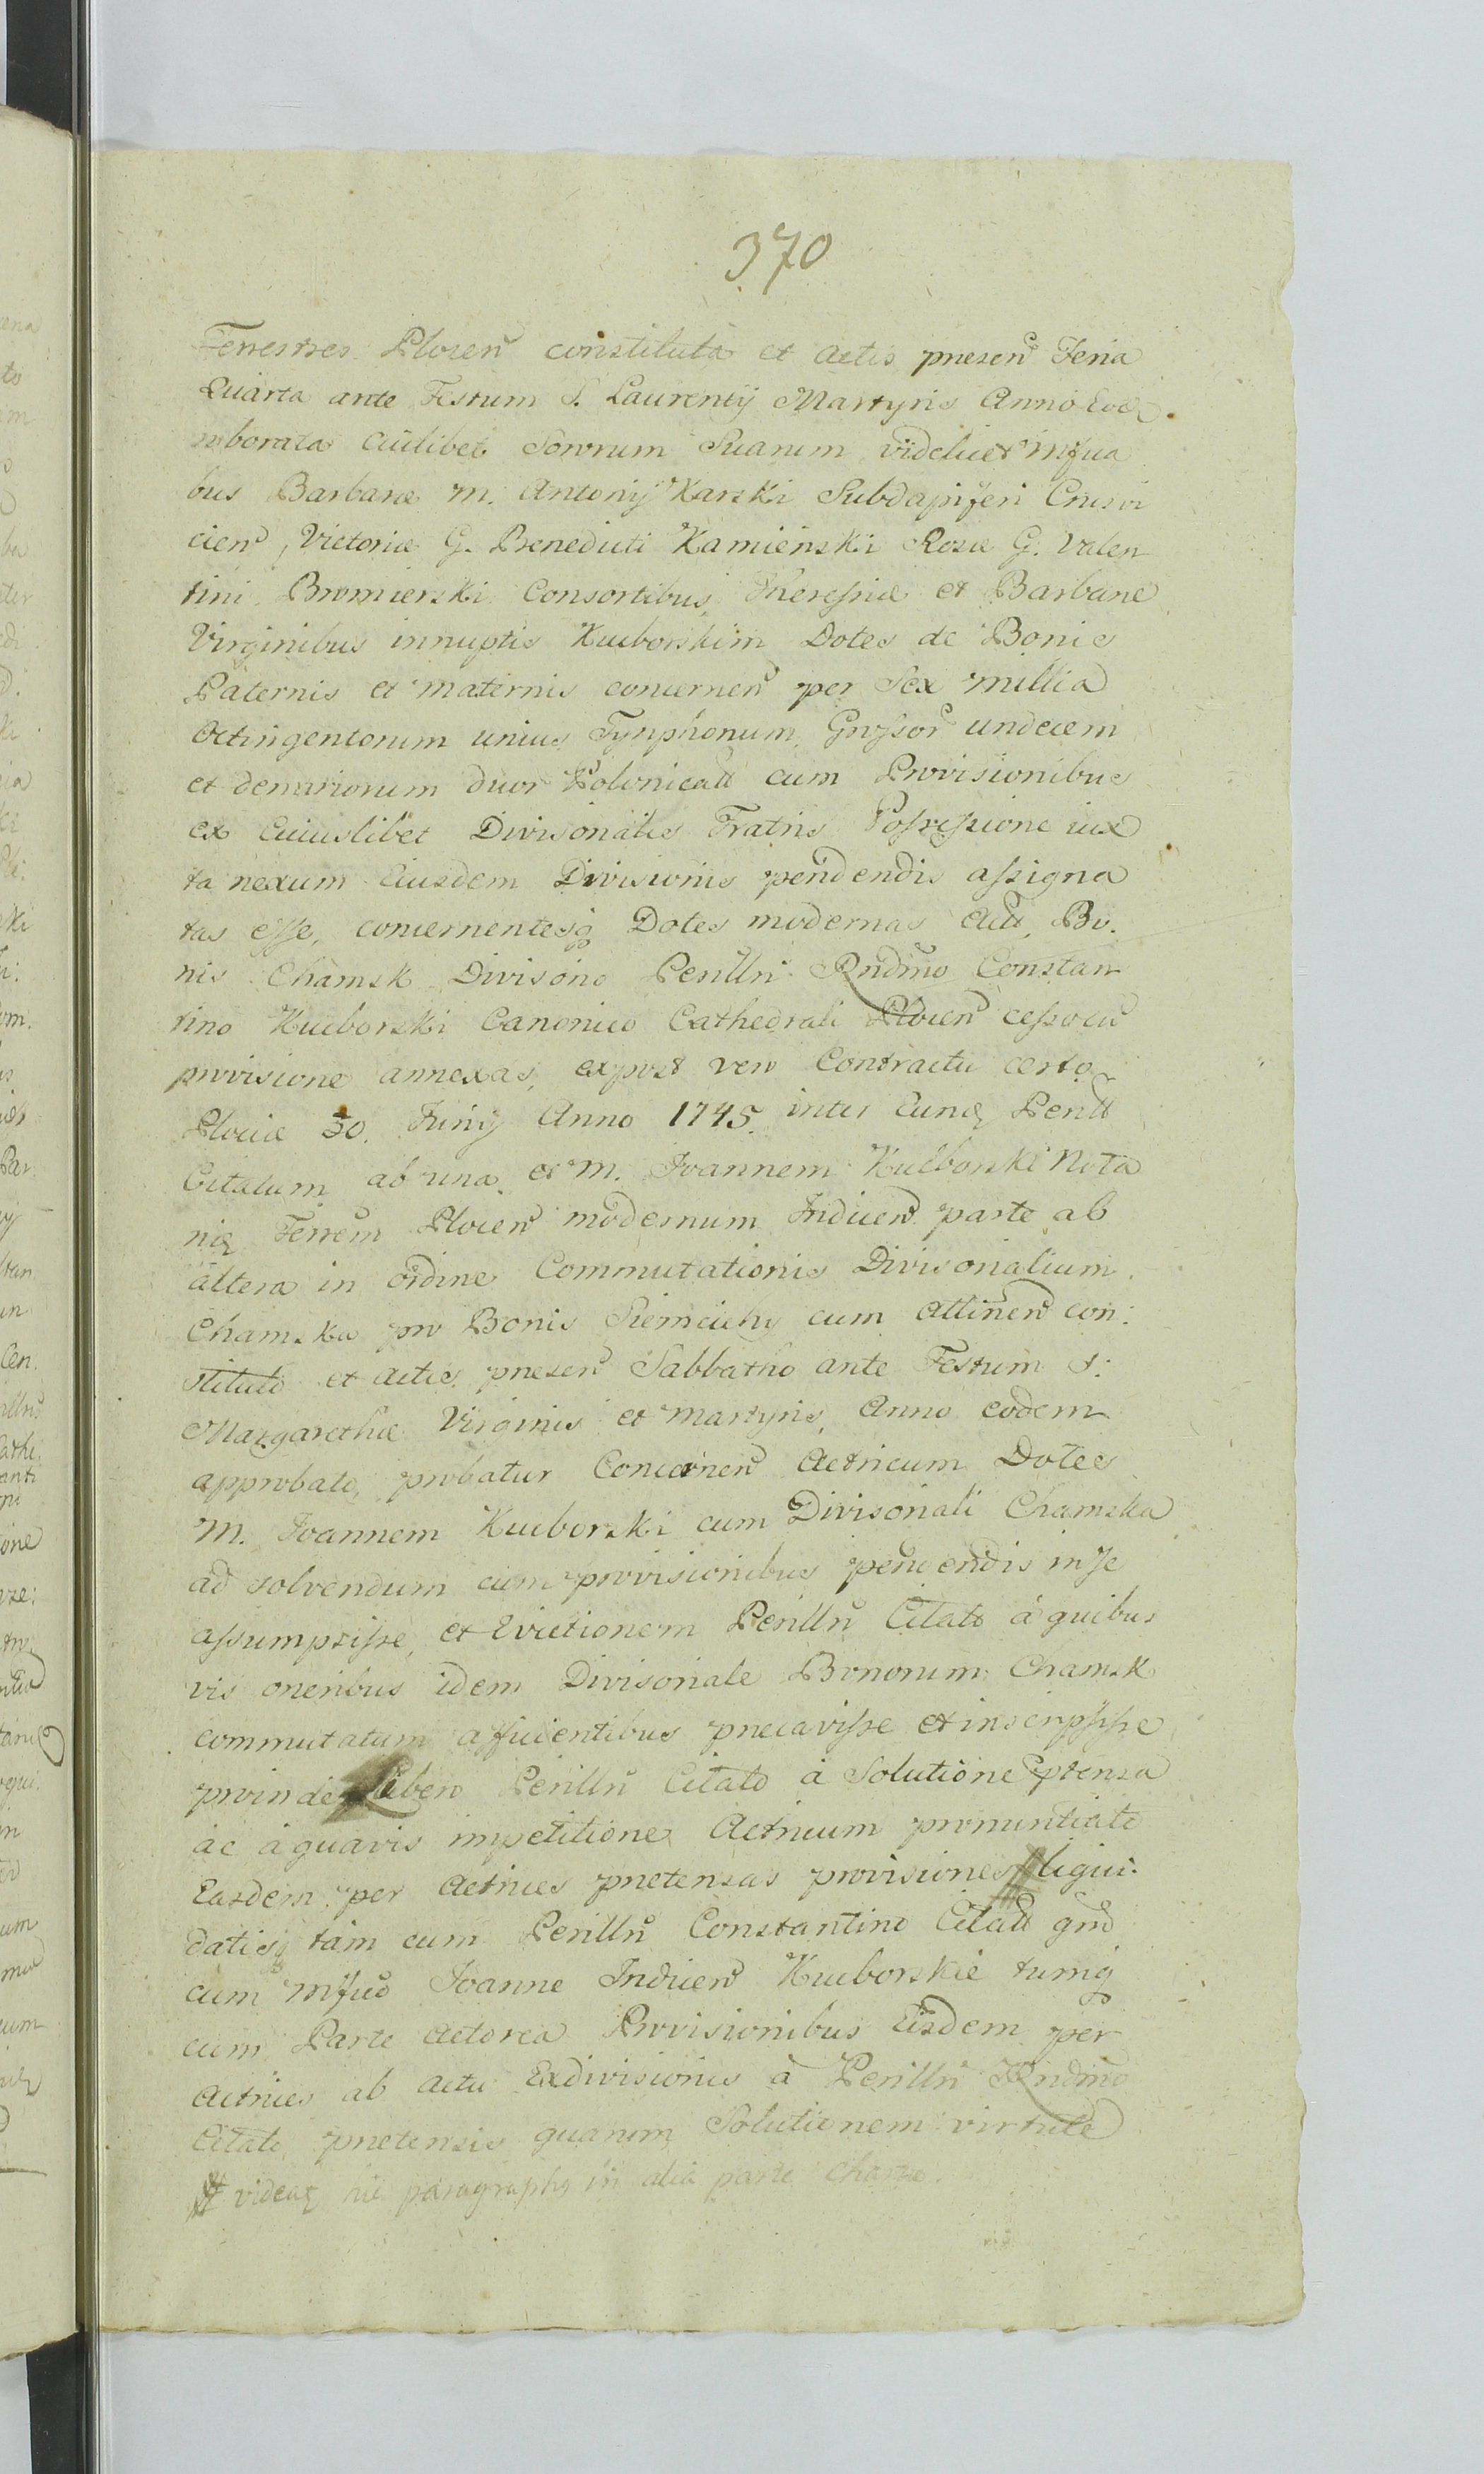 370
Terrestres Plocen constituta et Actis presen Feria
Quarta ante Festum S. Laurentij Martyris Anno Eod
roborata Cuilibet Sororum Suarum videlicet Mfcia
bus Barbaræ M. Antonij Karski Subdapiferi Crusvi
cien, Victoriæ G. Benedicti Kamienski Rosæ G. Valen
tini Bromierski Consortibus, Theresiæ et Barbaræ
Virginibus innuptis Kucborskim Dotes de Bonis
Paternis et Maternis concernen per Sex Millia
Octingentorum unius Tynphonum, Grossor undecem
et denariorum duor Polonicall cum Provisionibus
ex Cuiuslibet Divisonalis Fratris Possessione iux
ta nexum Eiusdem Divisionis pendendis assigna
tas esse, concernentesq Dotes modernas Act, Bo.
nis Chamsk Divisono Perillri Rndmo Constan
tino Kucborski Canonico Cathedrali Plocen cesso cu
provisione annexas, expost vero Contractu certo
Plociæ 30. Junij Anno 1745. inter Eunq Perill
Citatum ab una et M. Joannem Kucborski Nota
riq Terrem Plocen modernum Inducen parte ab
altera in ordine Commutationis Divisonalium
Chamska pro Bonis Sieméichy cum attinen con:
stituto et actis presen Sabbatho ante Festum S:
Margarethæ Virginis et Martyris, Anno eodem
approbato, probatur Concernen Actricum Dotes
M. Joannem Kucborski cum Divisonali Chamska
ad solvendum cum provisionibus pendendis in se
assumpsisse, et Evictionem Perillri Citato á quibus
vis oneribus idem Divisonale Bonorum Chamsk
commutatum afficientibus precavisse et inscripsisse
proinde Libero Perillri Citato á Solutione ptensa
ác áquavis impetitione Actricum pronuntiato
Easdem per Actrices pretensas provisiones liqui:
datisq tam cum Perillri Constantino Citall qm
cum Mfco Joanne Inducen Kucborskie tumq
cum Parte Actorea Provisionibus Eisdem per
Actrices ab Actu Exdivisionis á Perillri Rndmo
Citato pretensis quarum Solutionem virtute
videatq hic paragraphq in alia parte Chartæ.